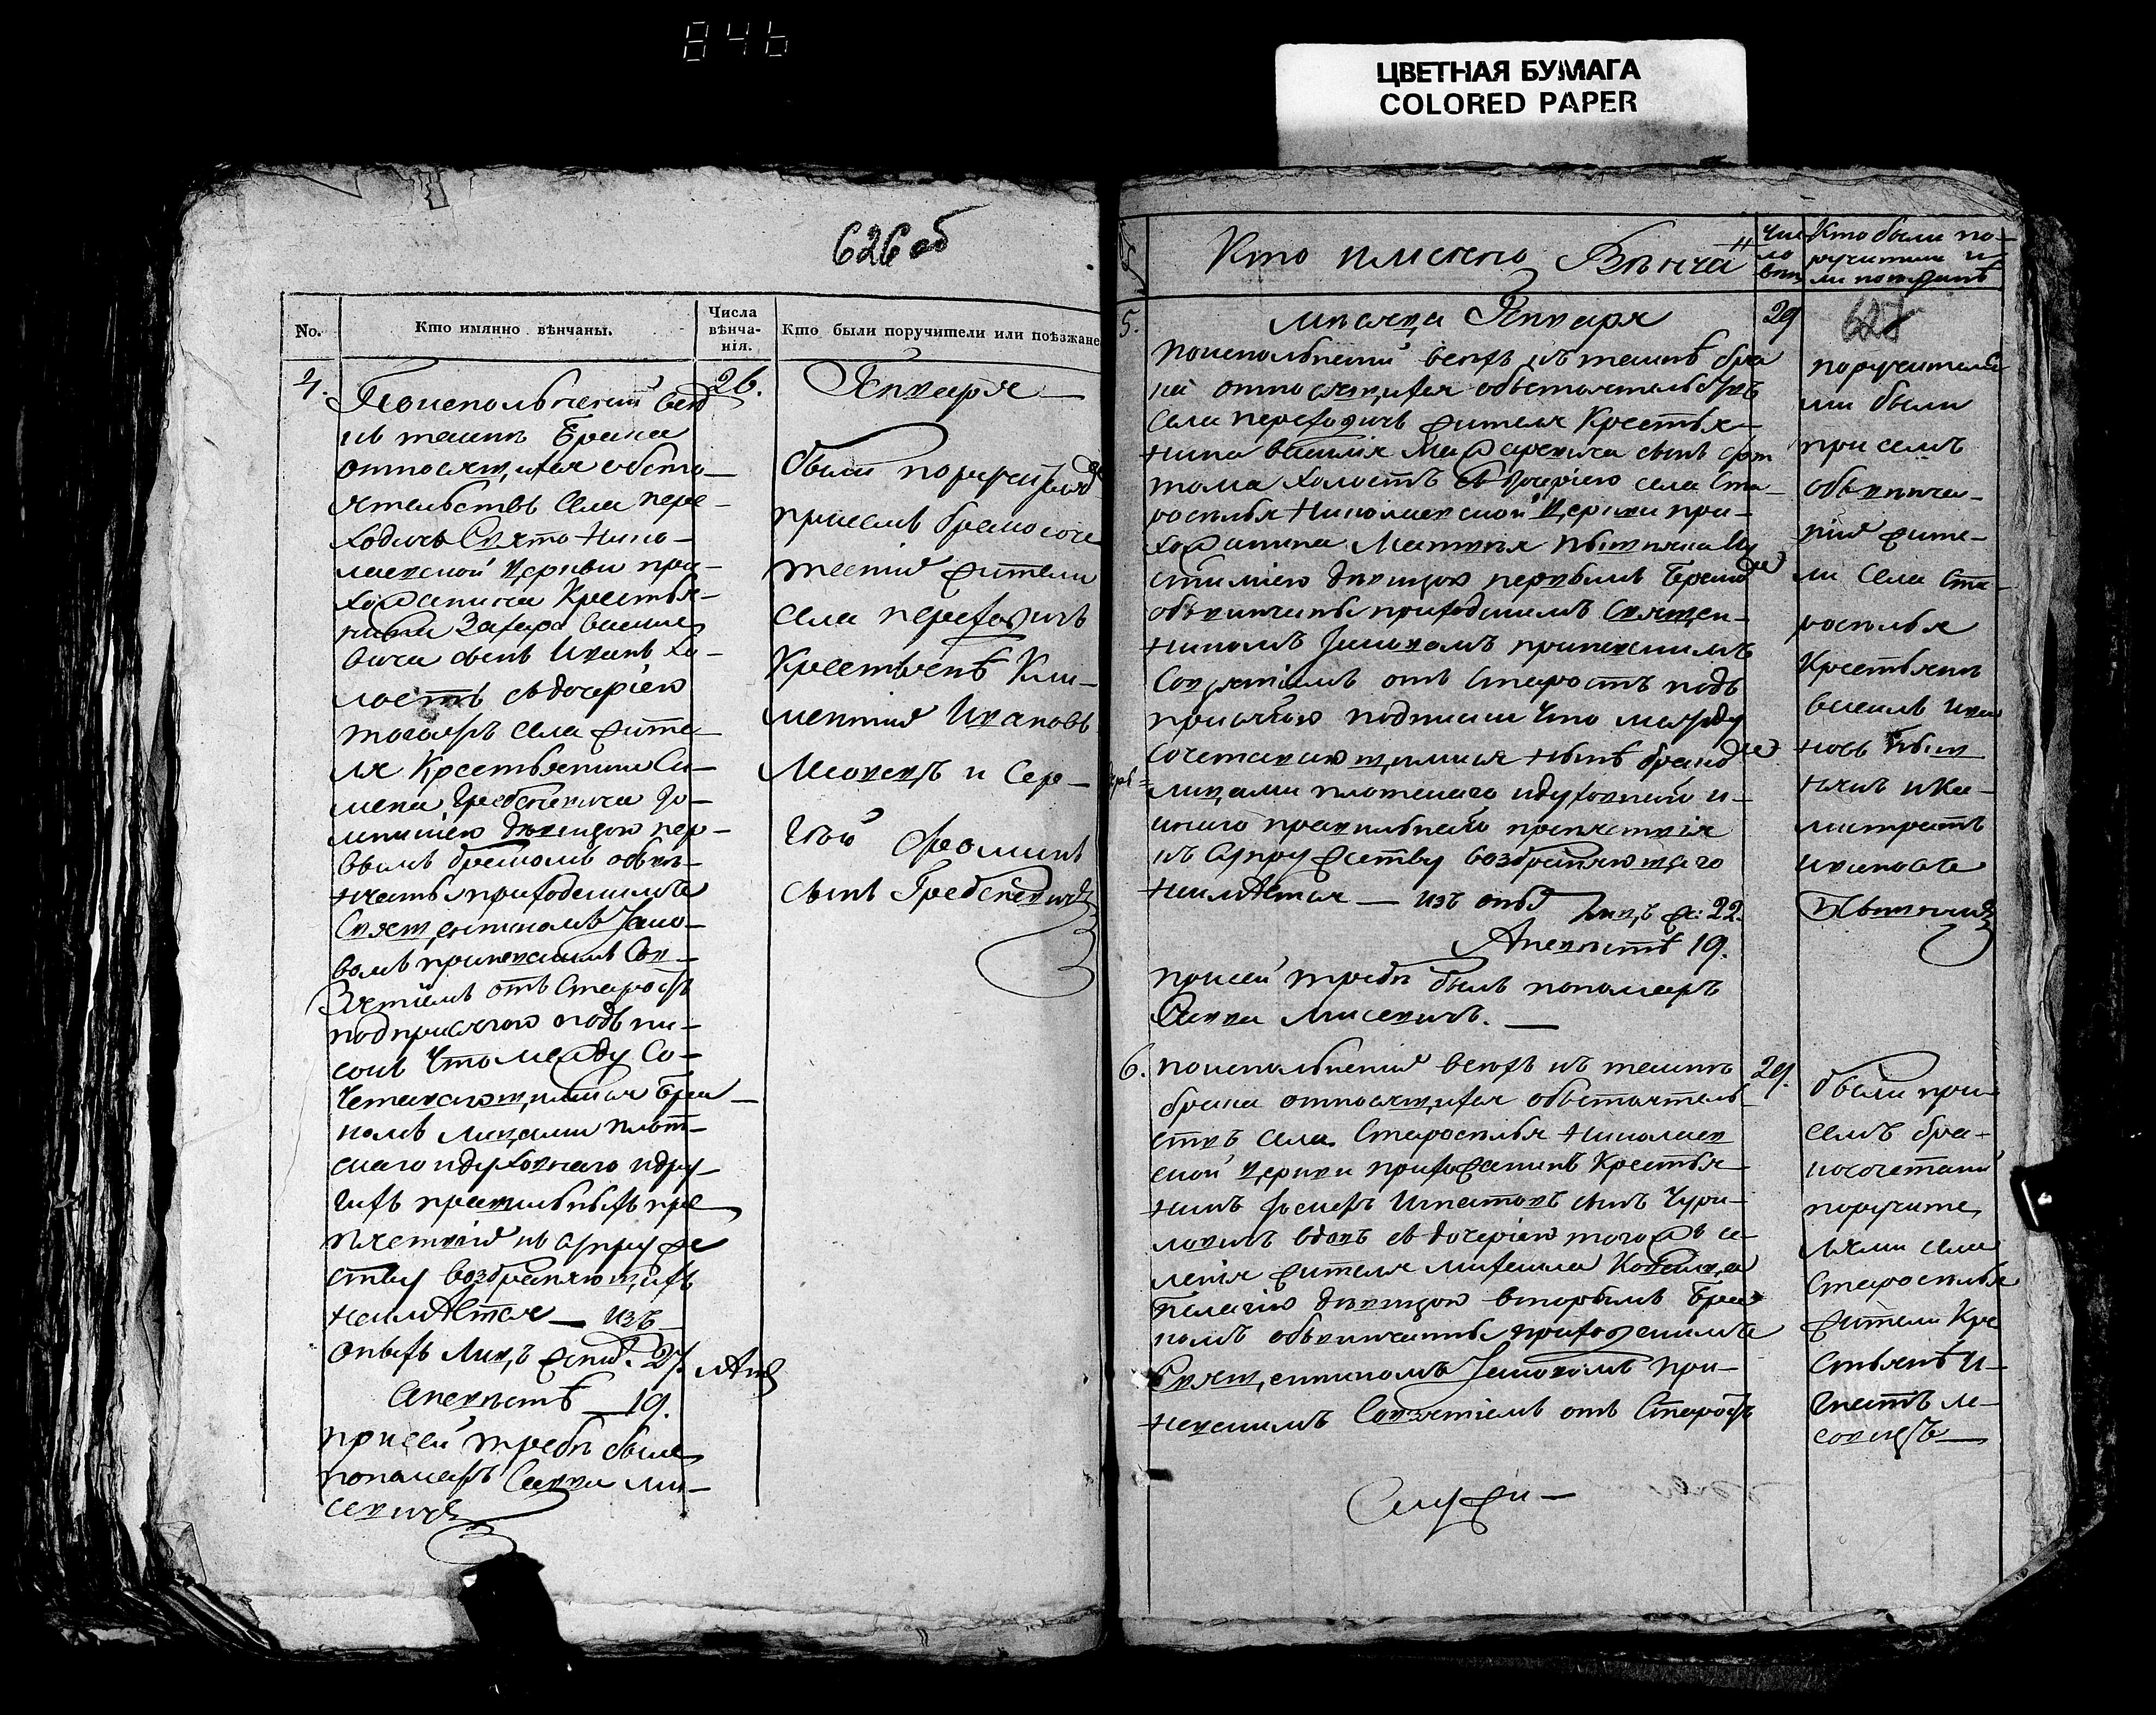 846
ЦВЕТНАЯ БУМАГА
COLORED PAPER
626 об
No.
Кто имянно вѣнчаны.
Числа
вѣнча-
нія.
Кто были поручители или поѣзжане
4.
По исполненіи всѣхъ
къ таинѣ Брака
относящихся обсто-
ятельствъ Села Пере-
ходичъ Свято Нико-
лаевской Церкви при-
хожанина Крестья-
нина Захара Василе-
вича сынъ Иванъ хо-
лостъ съ дочерію
тогожъ села жите-
ля Крестьянина Си-
мена Гребеневича До-
мникіею дѣвицею пер-
вымъ бракомъ обвѣ-
нчаны приходскимъ
Священникомъ
принѣвскимъ Со-
взятіемъ отъ Старостъ
подприсягою подпи-
сокъ Что между Со-
четавающимися Бра-
комъ Лицами плот-
скаго и духовнаго и дру-
гихъ правильныхъ пре-
пятствій къ Супруже-
ству возбраняющихъ
неимѣется — изъ
оныхъ Лицъ жених. 27. лѣтъ
А невѣстѣ — 19.
При сей требѣ былъ
пономарь Савва Ми-
севичъ
26.
Января
были поручители
при семъ бракосоче-
таніи жители
села Переходичъ
Крестьянѣ Кли-
ментій Ивановъ
и Сер-
гѣй Фоминъ
сынъ Гребеневичъ
№
Кто именно Вѣнча
Чис
ло
вѣн
Кто были по-
ручители и
ли поѣзжанѣ
5.
Мѣсяца Января
29
627
По исполненіи всѣхъ къ таинѣ бра
ка относящихся обстоятельствъ
села Переходичъ жителя Крестья-
нина Василія сынъ
холостъ съ дочерію села Ста-
роселья Николаевской Церкви при-
хожанина Матвѣя
дѣвицею первымъ Бракомъ
обвѣнчаны приходскимъ Священ-
никомъ принѣвскимъ
Совзятіемъ отъ Старостъ подъ
присягою подписки Что между
сочетавающимися нынѣ бракомъ
лицами плотскаго и духовнаго и
инаго правильнаго препятствія
къ Супружеству возбраняющаго
неимѣется — изъ оныхъ лицъ ж: 22.
А невѣстѣ 19.
При сей требѣ былъ пономарь
Савва Мисевичъ. —
поручителя
ми были
при семъ
обвѣнча-
ніи жите-
ли Села Ста-
роселья
Крестьянѣ
Василь Ива
новъ
някъ и Ка-
листратъ
Ивановъ
6.
По исполненіи всѣхъ къ таинѣ
брака относящихся обстоятель-
ствъ села Староселья Николаев
ской Церкви прихожанинъ Крестья-
нинъ Игнатовъ сынъ Чури-
ловичъ вдовъ съ дочерію тогожъ се-
ленія жителя Михаила
Пелагіею дѣвицею вторымъ Бра-
комъ обвѣнчаны приходскимъ
Священникомъ при-
нѣвскимъ Совзятіемъ отъ Старостъ
29.
были при
семъ бра-
косочетаніи
поручите
лями села
Староселья
жители Кре
стьянѣ И-
гнатъ